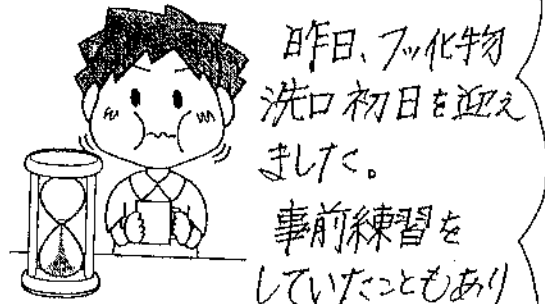 昨日、フッ化物
洗口初日を迎え
ました。
事前練習を
していたこともあり